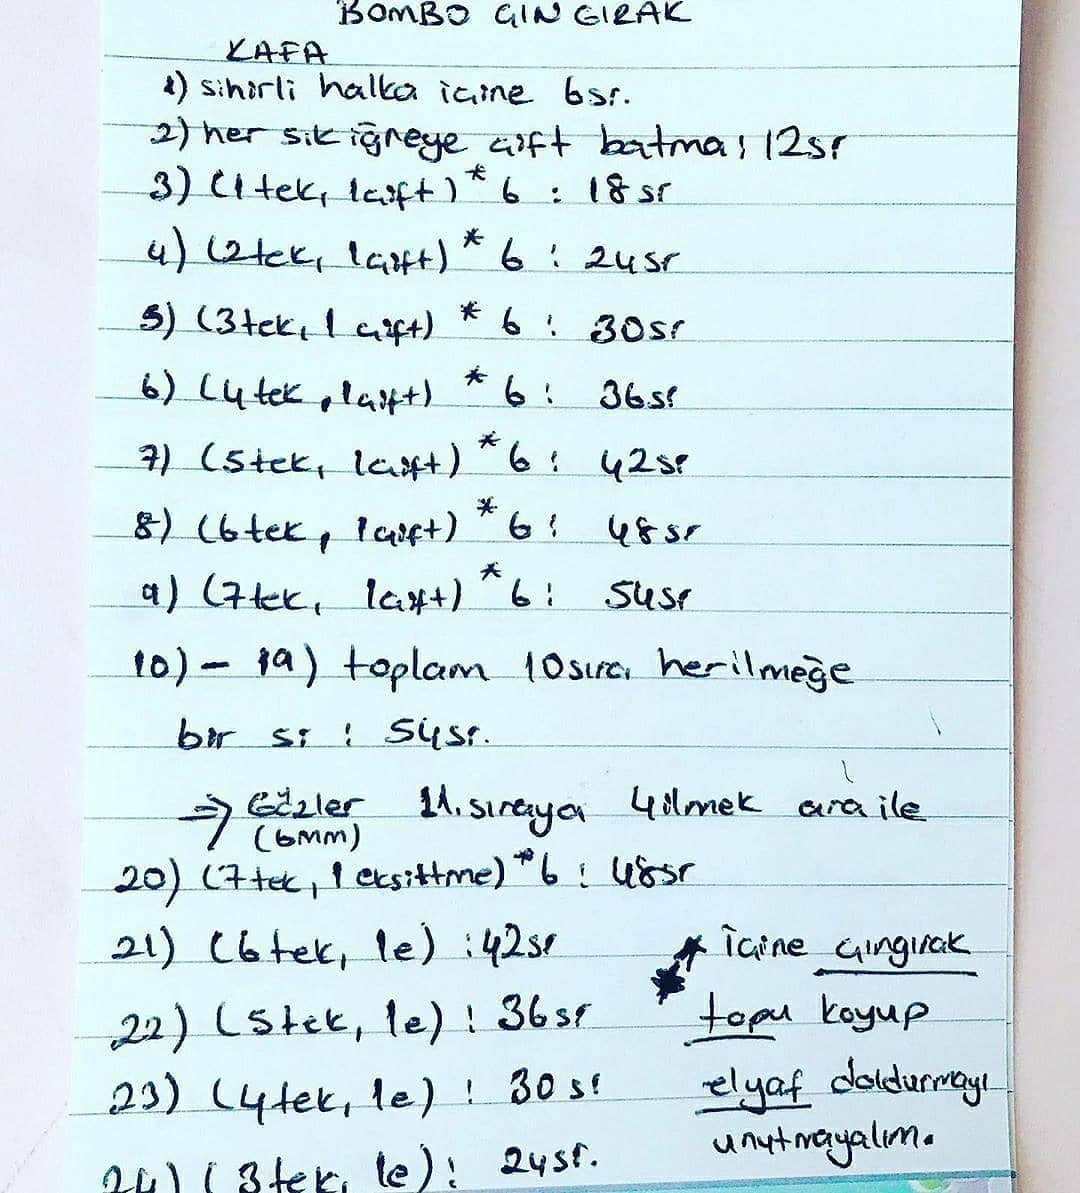 BOMBO ÇINGIRAK
KAFA
1) sihirli halka içine 6sr.
2) her sık iğneye çift batma: 12sr
3) (1 tek, 1çift) * 6 : 18 sr
4) (2tek, 1çift) * 6 : 24sr
5) (3tek, 1 çift) * 6 : 30sr
6) (4 tek, 1çift) * 6 : 36sr
7) (5tek, 1çift) * 6 : 42sr
8) (6tek, 1çift) * 6 : 48 sr
9) (7tek, 1çift) * 6 : 54sr
10) - 19) toplam 10sıra her ilmeğe
bir sr : 54sr.
⇒ Gözler 11. sıraya 4ilmek ara ile
(6mm)
20) (7tek, 1 eksiltme) * 6 : 48sr
21) (6 tek, 1e) : 42sr
22) (5tek, 1e) : 36 sr
23) (4tek, 1e) : 30 sr
24) (3tek, 1e) : 24sr.
* İçine çıngırak
* topu koyup
elyaf doldurmayı
unutmayalım.